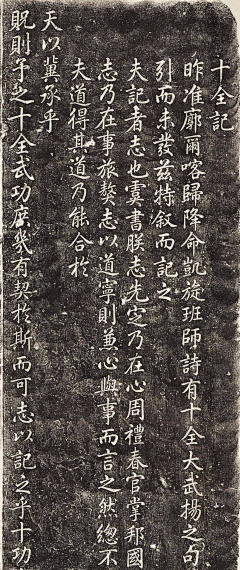 十全記
昨准廓爾喀歸降命凱旋班師詩有十全大武揚之句
引而未發茲特叙而記之
夫記者志也虞書朕志先定乃在心周禮春官掌邦國
志乃在事旅獒志以道寧則兼心與事而言之然總不
夫道得其道乃能合於
天以冀承乎
貺則予之十全武功庶幾有契於斯而可志以記之乎十功